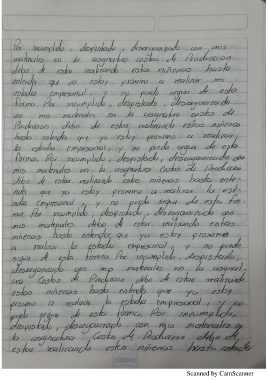 Por incumplido, despistado, desorganizado con mis
materiales en la asignatura costos de Produccion
debo de estar realizando estas niñerias hasta
entender que ya estoy proximo a realizar mi
estadia empresarial, y no puedo seguir de esta
forma. Por incumplido, despistado, desorganizado
con mis materiales en la asignatura costos de
Produccion debo de estar realizando estas niñerias
hasta entender que ya estoy proximo a realizar
la estadia empresarial, y no puedo seguir de esta
forma. Por incumplido, despistado, desorganizado con
mis materiales en la asignatura Costos de Produccion
debo de estar realizando estas niñerias hasta enten
der que ya estoy proximo a realizar la est
adia empresarial, y no puedo seguir de esta for
ma. Por incumplido, despistado, desorganizado con
mis materiales debo de estar realizando estas
niñerias hasta entender que ya estoy proximo
a realizar la estadia empresarial, y no puedo
seguir de esta forma. Por incumplido, despistado,
desorganizado con mis materiales en la asignat
ura Costos de Produccion debo de estar realizando
estas niñerias hasta entender que ya estoy
proximo a realizar la estadia empresarial, y no
puedo seguir de esta forma. Por incumplido,
despistado, desorganizado con mis materiales en
la asignatura Costos de Produccion debo de
estar realizando estas niñerias hasta entender
Scanned by CamScanner